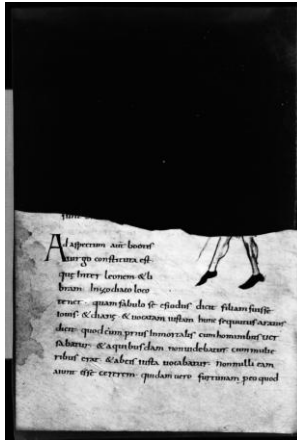 Ad aspectum aut bootis
uirgo constituta est
que inter leonem & li
bram in zodiaco loco
tenet quam fabulo se esiodus dicit filiam fuisse
iouis & uocatam iustam hunc sequutus aratus
dicit quod cum prius inmortalis cum hominibus uer
sabatur & aquibusdam non uidebatur cum mulie
ribus erat & abeis iusta uocabatur nonnulli eam
aiunt esse cererem quidam uero fortunam pro quod